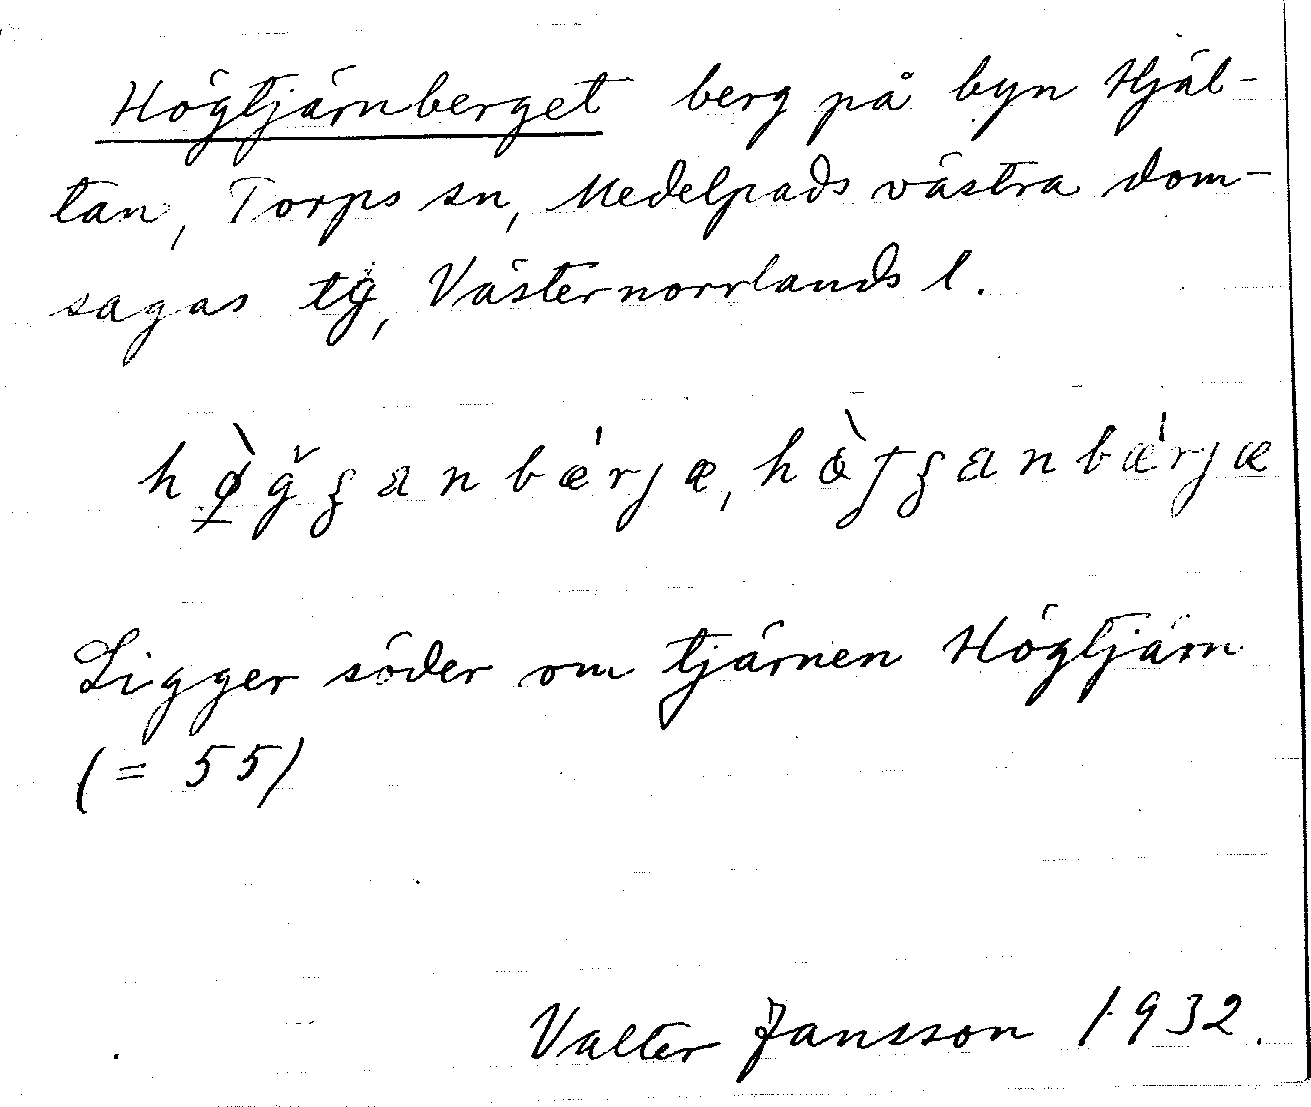 Högtjärnberget berg på byn Hjäl-
tan, Torps sn, Medelpads västra dom-
sagas tg, Västernorrlands l.
Ligger söder om tjärnen Högtjärn
(= 55)
Valter Jansson 1932.